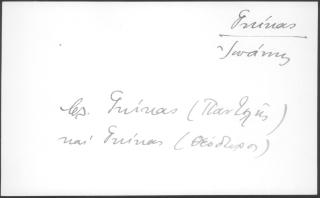 Γκίκας
Ἰωάννης
βλ. Γκίκας (Παντελῆς)
καί Γκίκας (Θεόδωρος)